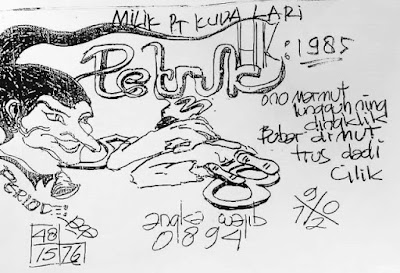 MILIK PT KUDA LARI
HK : 1985
Petruk
ono Marmut
lungguh ning
dingklik
Bubar di mut
trus dadi
cilik
PERIODE :
48
15 76
angka wajib
0 8 9 4
9/0
7/2